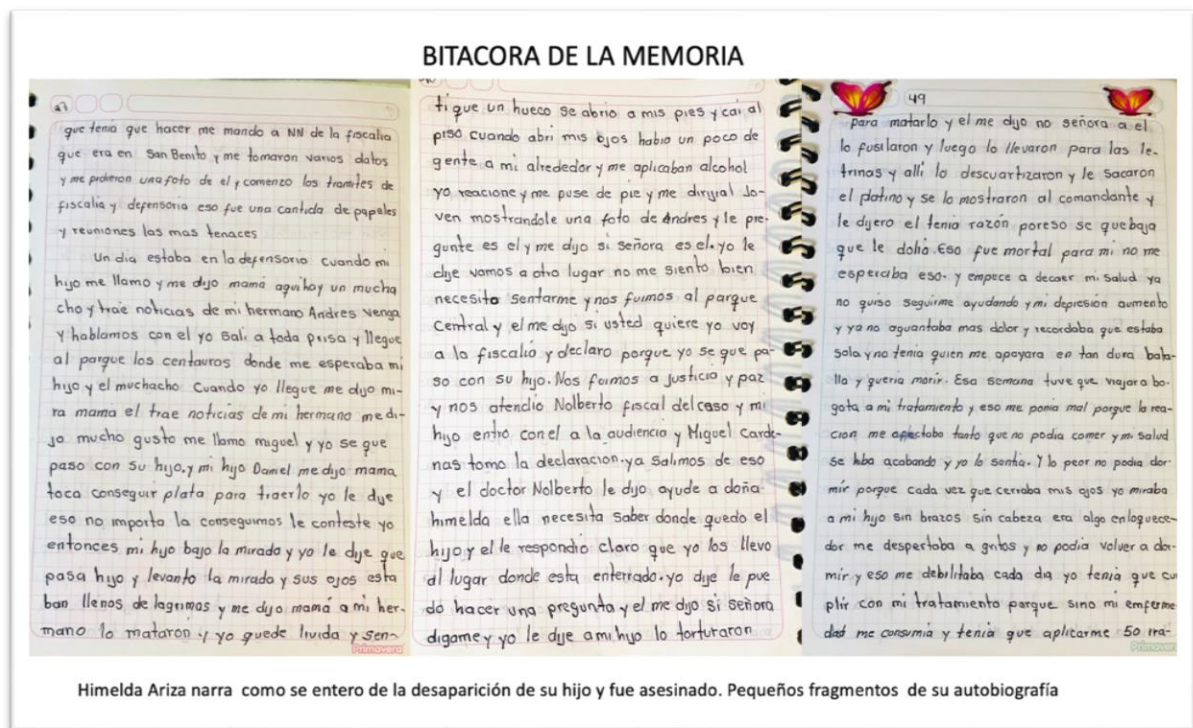 BITACORA DE LA MEMORIA
27
que tenia que hacer me mando a NN de la fiscalia
que era en San Benito y me tomaron varios datos
y me pidieron una foto de el y comenzo los tramites de
fiscalia y defensoria eso fue una cantida de papeles
y reuniones las mas tenaces
Un dia estaba en la defensoria cuando mi
hijo me llamo y me dijo mamá aqui hay un mucha
cho y trae noticias de mi hermano Andres venga
y hablamos con el yo Sali a toda prisa y llegue
al parque los centauros donde me esperaba mi
hijo y el muchacho cuando yo llegue me dijo mi-
ra mama el trae noticias de mi hermano me di-
jo mucho gusto me llamo miguel y yo se que
paso con su hijo, y mi hijo Daniel me dijo mama
toca conseguir plata para traerlo yo le dije
eso no importa la conseguimos le conteste yo
entonces mi hijo bajo la mirada y yo le dije que
pasa hijo y levanto la mirada y sus ojos esta
ban llenos de lagrimas y me dijo mamá a mi her-
mano lo mataron y yo quede livida y sen-
Primavera
ti que un hueco se abrio a mis pies y cai al
piso cuando abri mis ojos habia un poco de
gente a mi alrededor y me aplicaban alcohol
yo reaccione y me puse de pie y me dirijial Jo-
ven mostrandole una foto de Andres y le pre-
gunte es el y me dijo si señora es el. yo le
dije vamos a otro lugar no me siento bien
necesito sentarme y nos fuimos al parque
Central y el me dijo si usted quiere yo voy
a la fiscalia y declaro porque yo se que pa-
so con su hijo. Nos fuimos a justicia y paz
y nos atendio Nolberto fiscal del caso y mi
hijo entro con el a la audiencia y Miguel Carde-
nas tomo la declaracion. ya salimos de eso
y el doctor Nolberto le dijo ayude a doña
himelda ella necesita saber donde quedo el
hijo y el le respondio claro que yo los llevo
al lugar donde esta enterrado. yo dije le pue
do hacer una pregunta y el me dijo si señora
digame y yo le dije a mi hijo lo torturaron
49
para matarlo y el me dijo no señora a el
lo fusilaron y luego lo llevaron para las le-
trinas y alli lo descuartizaron y le sacaron
el platino y se lo mostraron al comandante y
le dijero el tenia razón poreso se quebaja
que le dolia. Eso fue mortal para mi no me
esperaba eso. y empece a decaer mi salud ya
no quiso seguirme ayudando y mi depresion aumento
y ya no aguantaba mas dolor y recordaba que estaba
sola y no tenia quien me apoyara en tan dura bata-
lla y queria morir. Esa semana tuve que viajar a bo-
gota a mi tratamiento y eso me ponia mal porque la rea-
cion me afectaba tanto que no podia comer y mi salud
se hiba acabando y yo lo sentia. Y lo peor no podia dor
mir porque cada vez que cerraba mis ojos yo miraba
a mi hijo sin brazos sin cabeza era algo enloquece-
dor me despertaba a gritos y no podia volver a dor-
mir y eso me debilitaba cada dia yo tenia que cu
plir con mi tratamiento porque sino mi enferme
dad me consumia y tenia que aplicarme 50 ira-
Primavera
Himelda Ariza narra como se entero de la desaparición de su hijo y fue asesinado. Pequeños fragmentos de su autobiografía